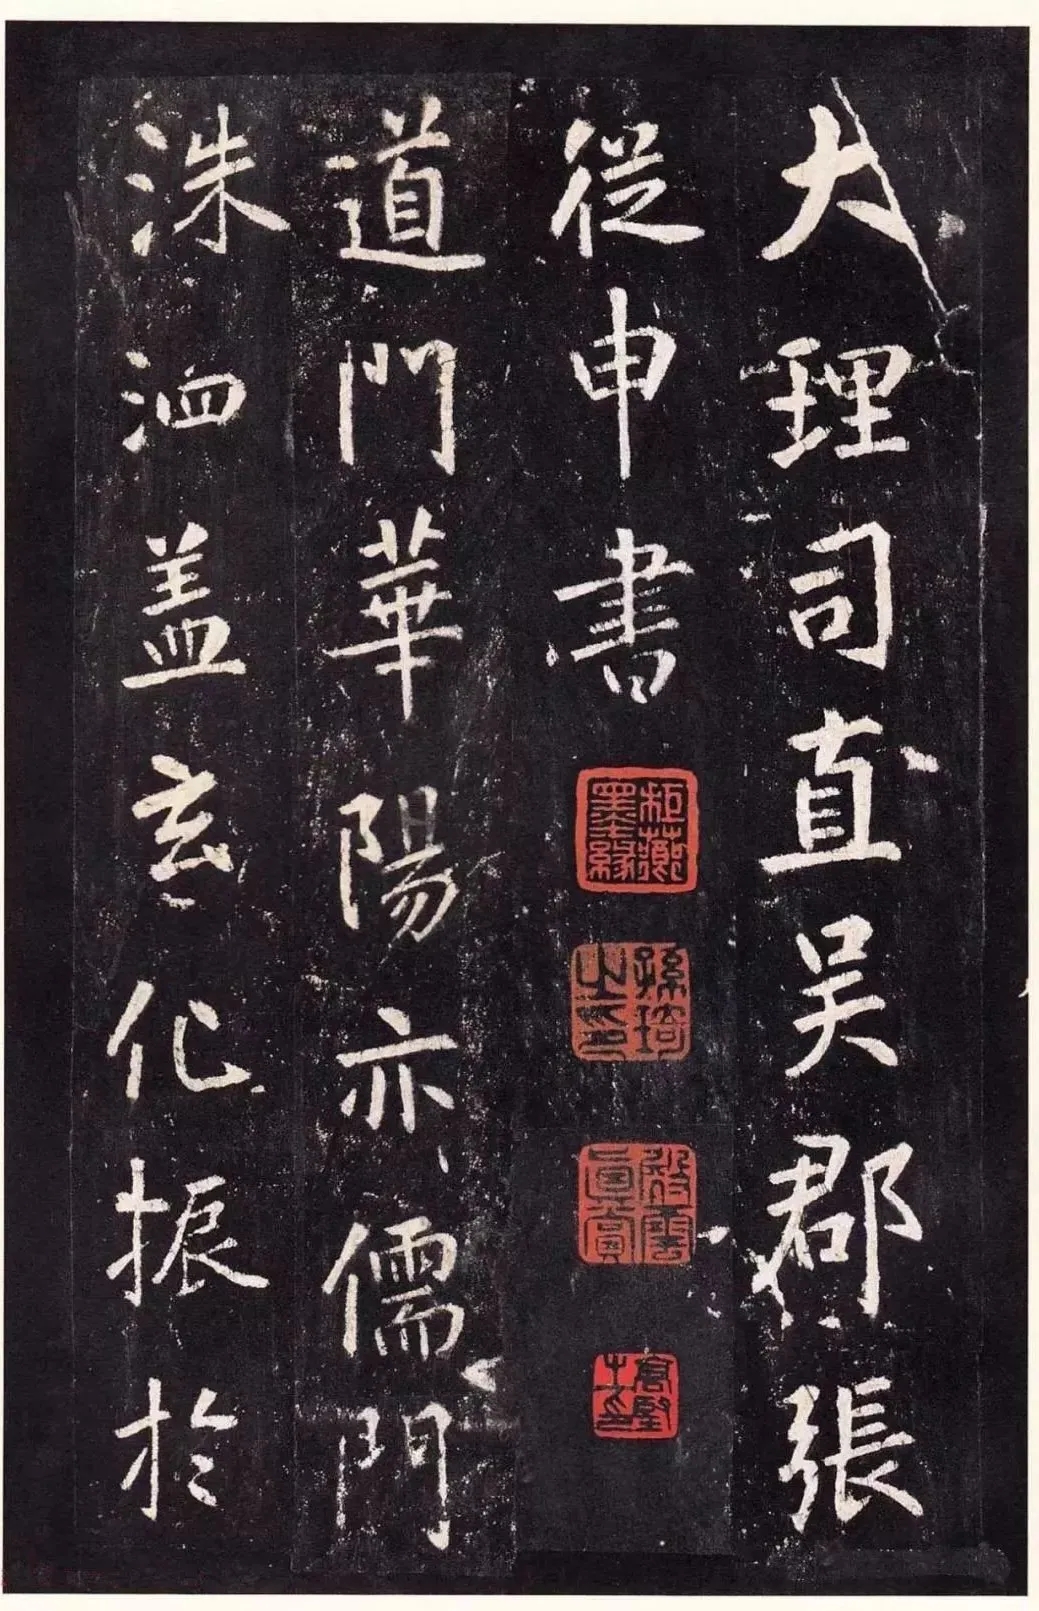 大理司直吴郡張
從申書
孫琦之印
道門華陽亦儒門
洙泗盖玄化振於